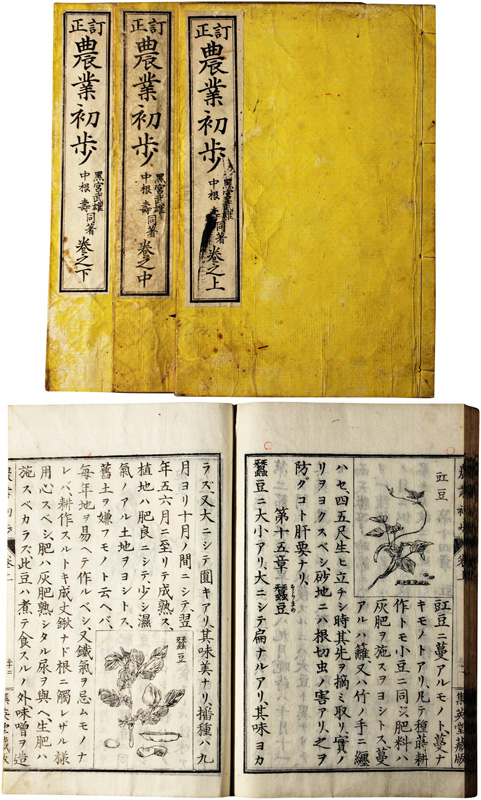 訂正
農業初歩
黒宮武雄
中根壽同著
巻之上
訂正
農業初歩
黒宮武雄
中根壽同著
巻之中
訂正
農業初歩
黒宮武雄
中根壽同著
巻之下
集英堂藏版
豇豆
豇豆ニ蔓アルモノト蔓ナ
キモノトアリ、凡テ種蒔耕
作トモ小豆ニ同ジ、肥料ハ
灰肥ヲ施スヲヨシトス蔓
アルハ籬又竹ノ手ニ纒
ハセ四五尺生ヒ立チシ時其先ヲ摘ミ取リ、實ノ
リヲヨクスベシ砂地ニハ根切虫ノ害アリ、之ヲ
防グコト肝要ナリ、
第十五章 蠶豆
蠶豆ニ大小アリ、大ニシテ扁ナルアリ、其味ヨカ
ラズ又大ニシテ圓キアリ其味美ナリ播種ハ九
月ヨリ十月ノ間ニシテ翌
年五六月ニ至リテ成熟ス、
植地ハ肥良ニシテ、少シ濕
氣ノアル土地ヲヨシトス、
舊土ヲ嫌フモノト云ヘバ、
蠶豆
毎年地ヲ易ヘテ作ルベシ、又鐵氣ヲ忌ムモノナ
レバ、耕作スルトキ成丈鍬ナド根ニ觸レザル樣
用心スベシ、肥ハ灰肥熟シタル尿ヲ與ヘ、生肥ハ
施スベカラズ、此豆ハ煮テ食スルノ外味噌ヲ造